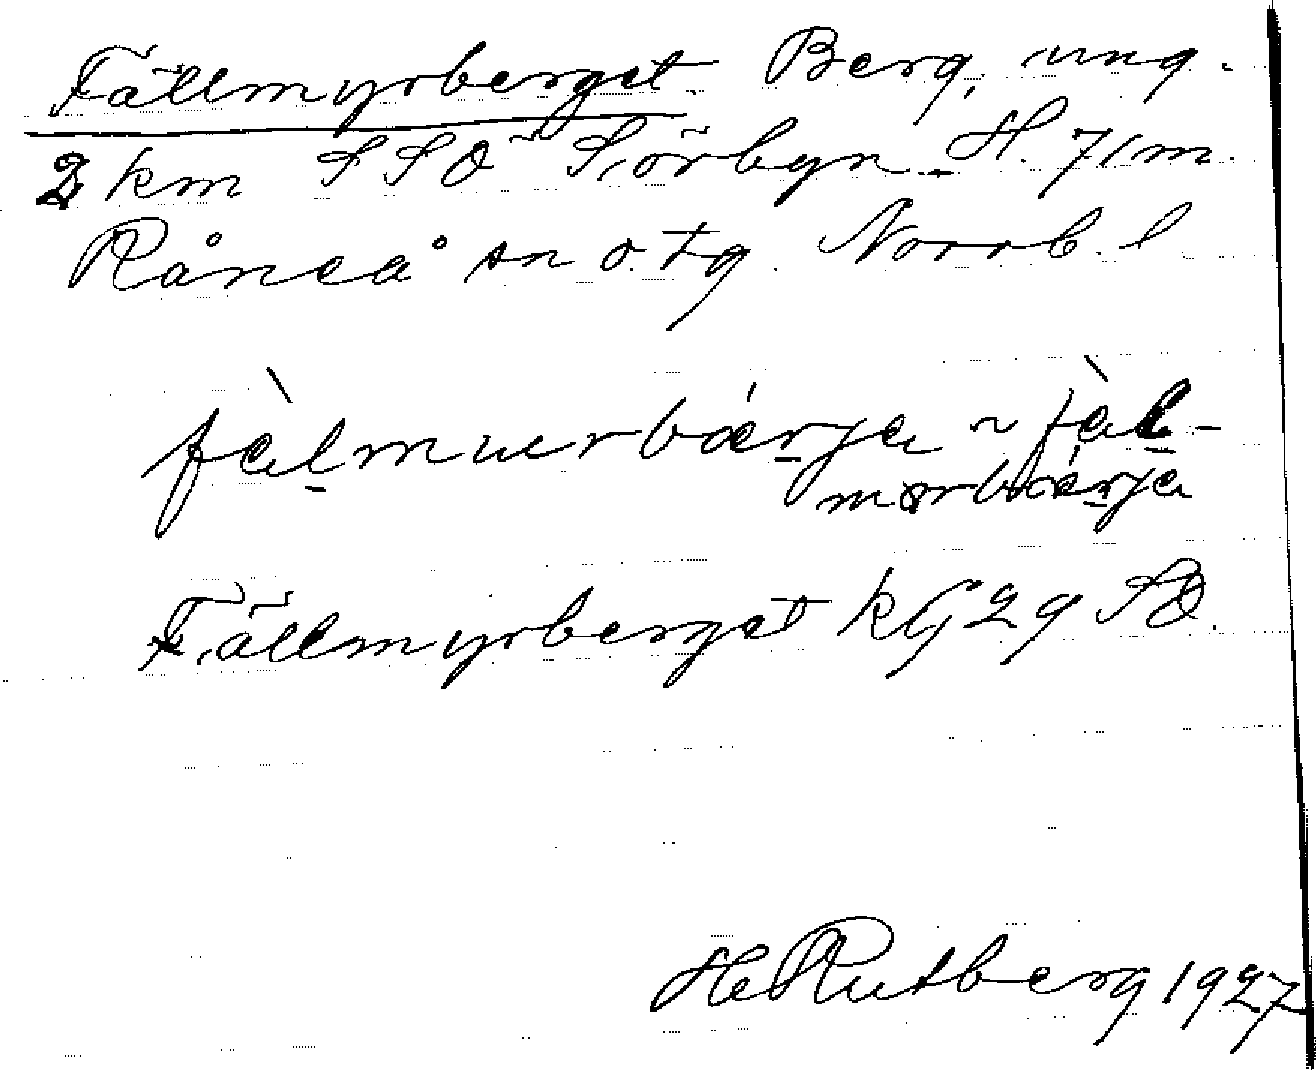 Fällmyrberget. Berg, ung.
2 km SSO Sörbyn. H. 71 m.
Råneå sn o. tg. Norrb. l
fàlmuerbǽrja ~ fàl-
mørbǽrja
Fällmyrberget kG 29 SO.
H Rutberg 1927